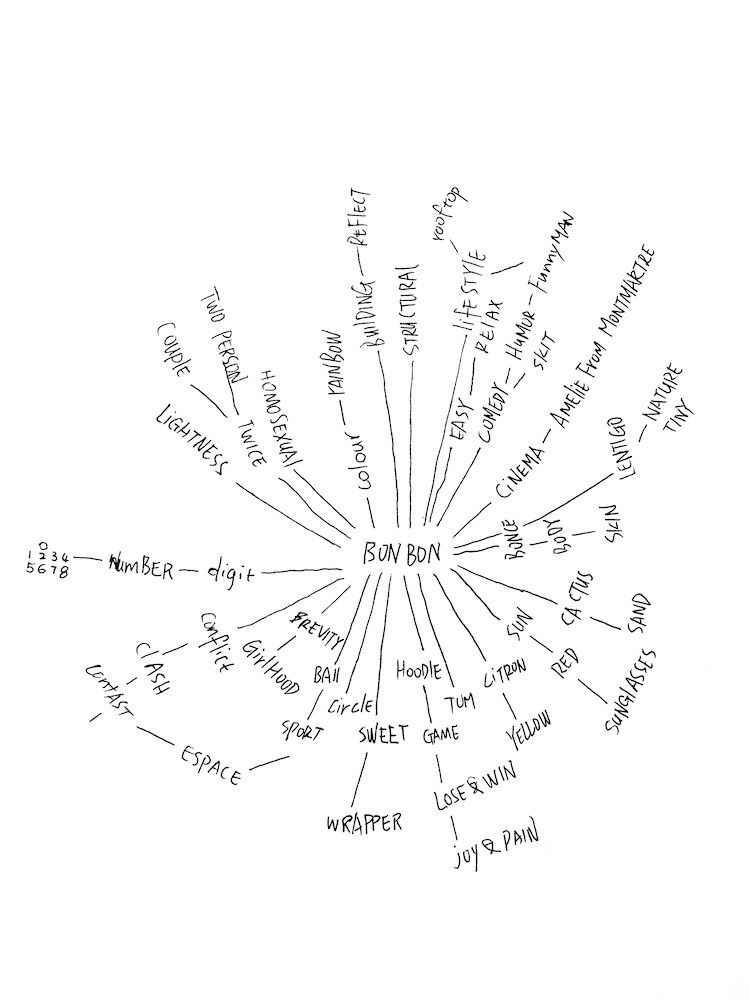 rooftop
REFLECT
LIFESTYLE
BUILDING
STRUCTURAL
RELAX
EASY
FUNNYMAN
HUMOR
COMEDY
SKIT
AMELIE FROM MONTMARTRE
CINEMA
TWO PERSON
COUPLE
TWICE
HOMOSEXUAL
LIGHTNESS
RAINBOW
colour
NATURE
TINY
LENTIGO
BONCE
BODY
SKIN
BONBON
0
1 2 3 4
5 6 7 8
NUMBER
digit
CACTUS
SAND
SUN
RED
SUNGLASSES
CITRON
YELLOW
conflict
CLASH
contAST
ESPACE
BREVITY
GirlHOOD
BAll
SPORT
Circle
SWEET
WRAPPER
HOODIE
GAME
LOSE & WIN
joy & PAIN
TUM